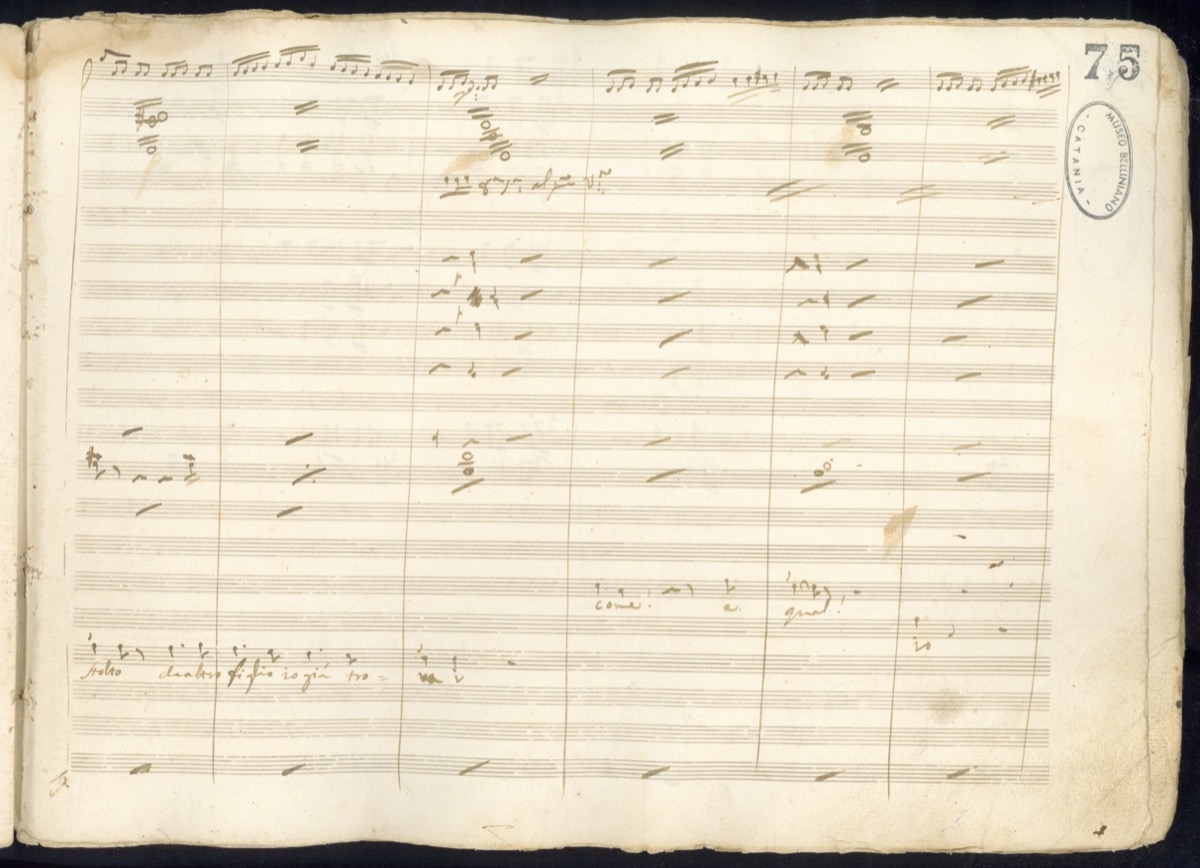 75
MUSEO BELLINIANO
- CATANIA -
come! e
qual!
io
stolto altro figlio io già tro=